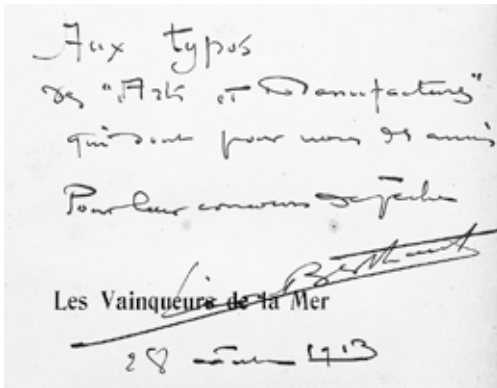 Aux typos
des "Arts et Manufactures"
qui sont pour nous des amis
Pour leur concours
Léon Berthaut
Les Vainqueurs de la Mer
28 1913